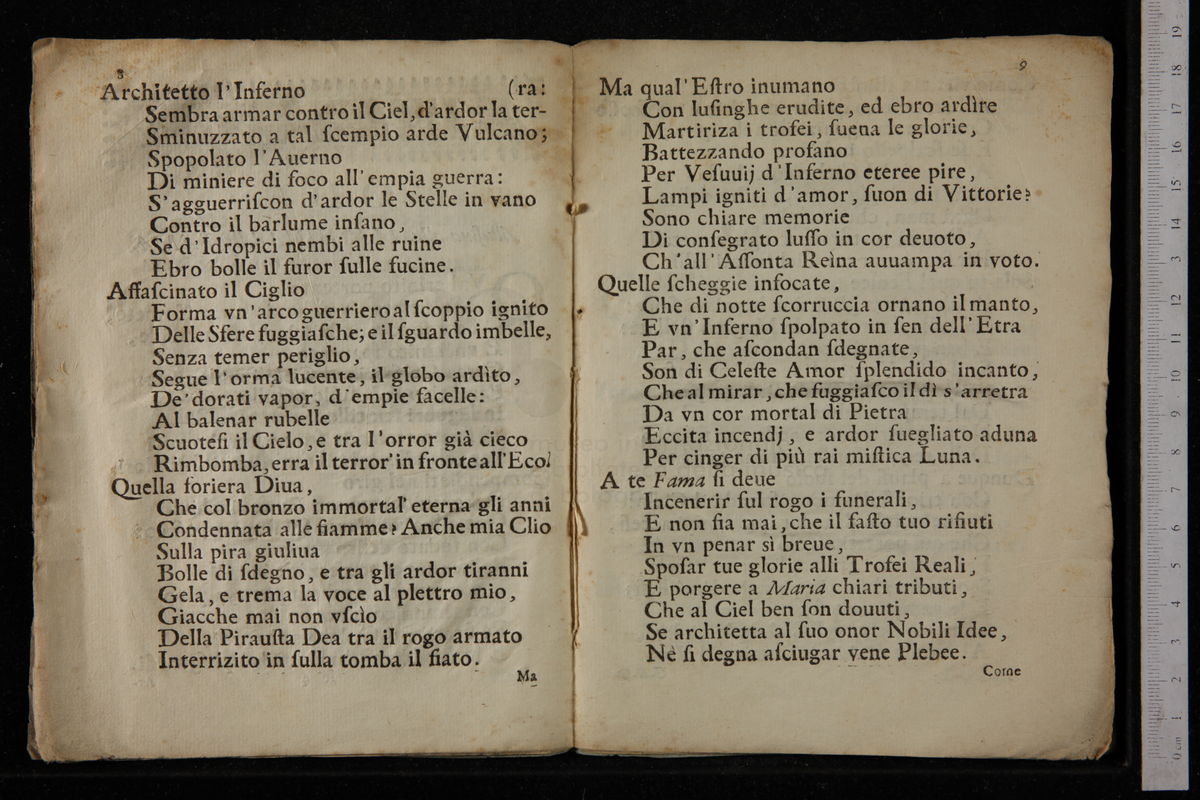 8
Architetto l'Inferno (ra:
Sembra armar contro il Ciel, d'ardor la ter-
Sminuzzato a tal ſcempio arde Vulcano;
Spopolato l'Auerno
Di miniere di foco all' empia guerra:
S'agguerriſcon d'ardor le Stelle in vano
Contro il barlume inſano,
Se d'Idropici nembi alle ruine
Ebro bolle il furor ſulle fucine.
Affaſcinato il Ciglio
Forma vn'arco guerriero al ſcoppio ignito
Delle Sfere fuggiaſche; e il ſguardo imbelle,
Senza temer periglio,
Segue l'orma lucente, il globo ardìto,
De' dorati vapor, d'empie facelle:
Al balenar rubelle
Scuoteſi il Cielo, e tra l'orror già cieco
Rimbomba, erra il terror' in fronte all'Eco!
Quella foriera Diua,
Che col bronzo immortal' eterna gli anni
Condennata alle fiamme? Anche mia Clio
Sulla pira giuliua
Bolle di ſdegno, e tra gli ardor tiranni
Gela, e trema la voce al plettro mio,
Giacche mai non vſcìo
Della Pirauſta Dea tra il rogo armato
Interrizito in ſulla tomba il fiato.
Ma
9
Ma qual' Eſtro inumano
Con luſinghe erudite, ed ebro ardìre
Martiriza i trofei, ſuena le glorie,
Battezzando profano
Per Veſuuij d'Inferno eteree pire,
Lampi igniti d'amor, ſuon di Vittorie?
Sono chiare memorie
Di conſegrato luſſo in cor deuoto,
Ch'all'Aſſonta Reìna auuampa in voto.
Quelle ſcheggie infocate,
Che di notte ſcorruccia ornano il manto,
E vn'Inferno ſpolpato in ſen dell'Etra
Par, che aſcondan ſdegnate,
Son di Celeſte Amor ſplendido incanto,
Che al mirar, che fuggiaſco il dì s'arretra
Da vn cor mortal di Pietra
Eccita incendj, e ardor ſuegliato aduna
Per cinger di più rai miſtica Luna.
A te Fama ſi deue
Incenerir ſul rogo i funerali,
E non fia mai, che il faſto tuo rifiuti
In vn penar sì breue,
Spoſar tue glorie alli Trofei Reali,
E porgere a Maria chiari tributi,
Che al Ciel ben ſon douuti,
Se architetta al ſuo onor Nobili Idee,
Nè ſi degna aſciugar vene Plebee.
Come
0 cm 1 2 3 4 5 6 7 8 9 10 11 12 13 14 15 16 17 18 19